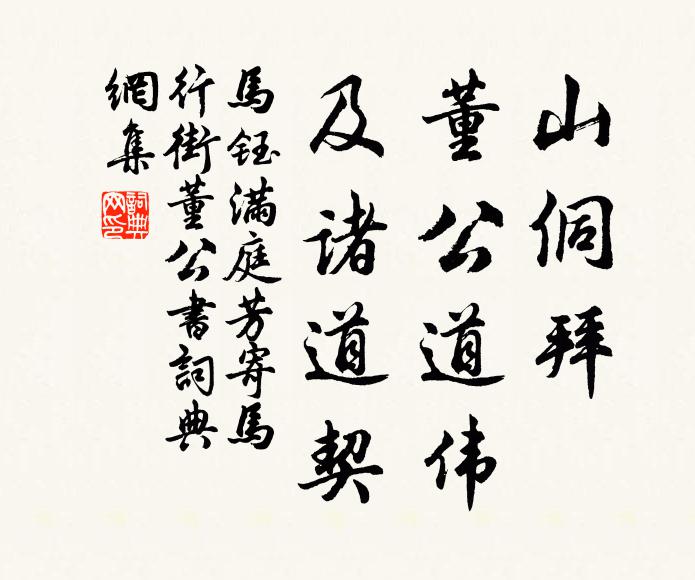 山侗拜
董公道伟
及诸道契
馬鈺滿庭芳寄馬
行街董公書詞典
網集
詞典网印